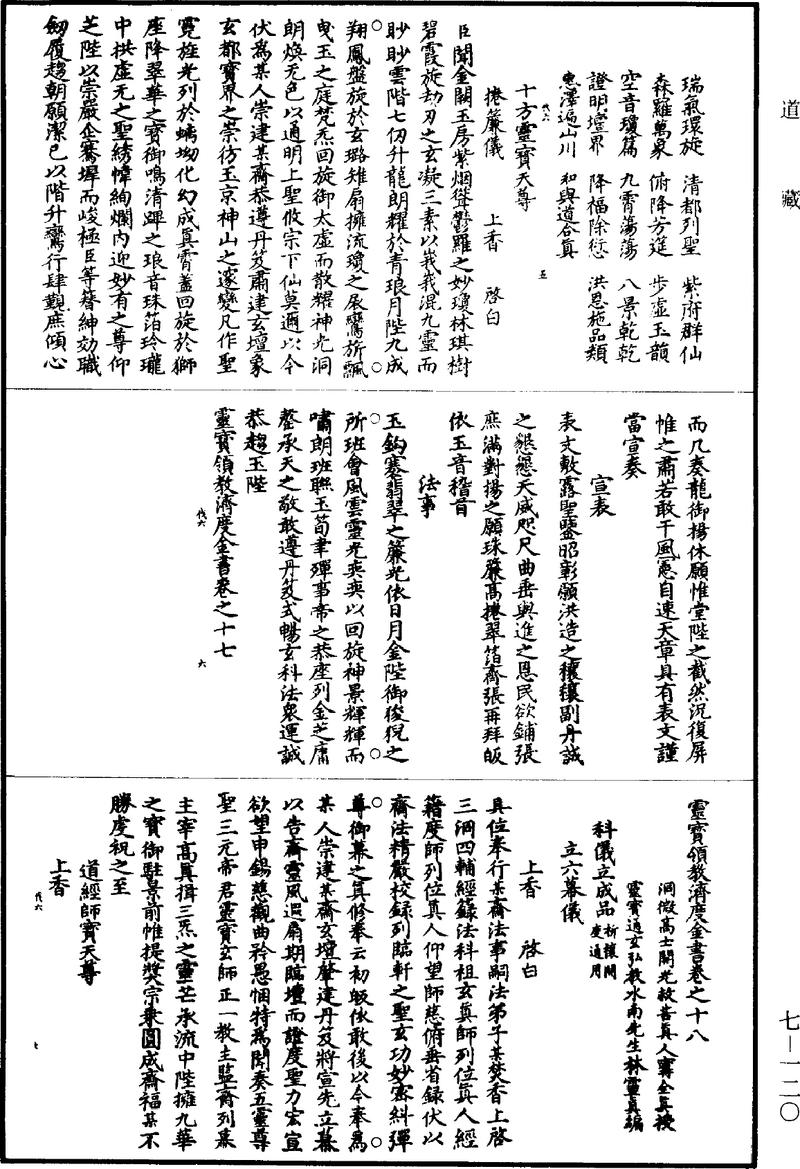 道藏
瑞氣環旋　清都列聖　紫府群仙
森羅萬象　俯降方筵　步虛玉韻
空音瓊篇　九霄蕩蕩　八景乾乾
證明壇界　降福除愆　洪恩施品類
惠澤遍山川　和與道合真
十方靈寶天尊
捲簾儀　上香　啓白
臣聞金闕玉房紫烟聳鬱羅之妙瓊林琪樹
碧霞旋劫刃之玄凝三素以峩峩混九靈而
眇眇雲階七仞升龍朗耀於青琅月陛九成
翔鳳盤旋於玄璐雉扇擁流瓊之扆鸞旂飄
曳玉之庭梵炁回旋御太虛而散耀神光洞
朗煥无色以通明上聖攸宗下仙莫邇以今
伏為某人崇建某齋恭遵丹笈肅建玄壇象
玄都寶界之崇彷玉京神山之邃變凡作聖
霓旌光列於蠕坳化幻成真霄蓋回旋於獅
座降翠華之寶御鳴清蹕之琅音珠箔玲瓏
中拱虛无之聖綉幃絢爛內迎妙有之尊仰
芝陛以崇嚴企騫墀而峻極臣等簪紳効職
劒履趨朝願潔已以階升鸞行肆觀庶傾心
而几奏龍御揚休願惟堂陛之截然況復屏
帷之肅若敢干風憲自速天章具有表文謹
當宣奏
宣表
表文敷露聖鑒昭彰願洪造之穰穰副丹誠
之懇懇天威咫尺曲垂與進之恩民欲鋪張
庶滿對揚之願珠簾高捲翠箔齊張再拜皈
依玉音稽首
法事
玉鈎褰翡翠之簾光依日月金陛御狻猊之
所班會風雲靈光奕奕以回旋神景輝輝而
嘯朗班聯玉筍聿殫事帝之恭座列金芝庸
罄承天之敬敢遵丹笈式暢玄科法衆運誠
恭趨玉陛
靈寶領教濟度金書卷之十七
靈寶領教濟度金書卷之十八
洞微高士開光救苦真人甯全真授
靈寶通玄弘教水南先生林靈真編
科儀立成品祈禳開度通用
立六幕儀
上香　啓白
具位奉行某齋法事嗣法弟子某焚香上啓
三洞四輔經籙法科祖玄真師列位真人經
籍度師列位真人仰望師慈俯垂省録伏以
齋法精嚴校録列臨軒之聖玄功妙密糾彈
尊御幕之真修奉云初皈依敢後以今奉為
某人崇建某齋玄壇肇建丹笈將宣先立幕
以告齋靈風迴扇期臨壇而證度聖力宏宣
欲望申錫慈觀曲矜愚悃特為聞奏五靈尊
聖三元帝君靈寶玄師正一教主監齋列幕
主宰高真揖三炁之靈芒承流中陛擁九華
之寶御駐景前帷提獎宗乘圓成齋福某不
勝虔祝之至
道經師寶天尊
上香
七－一二〇